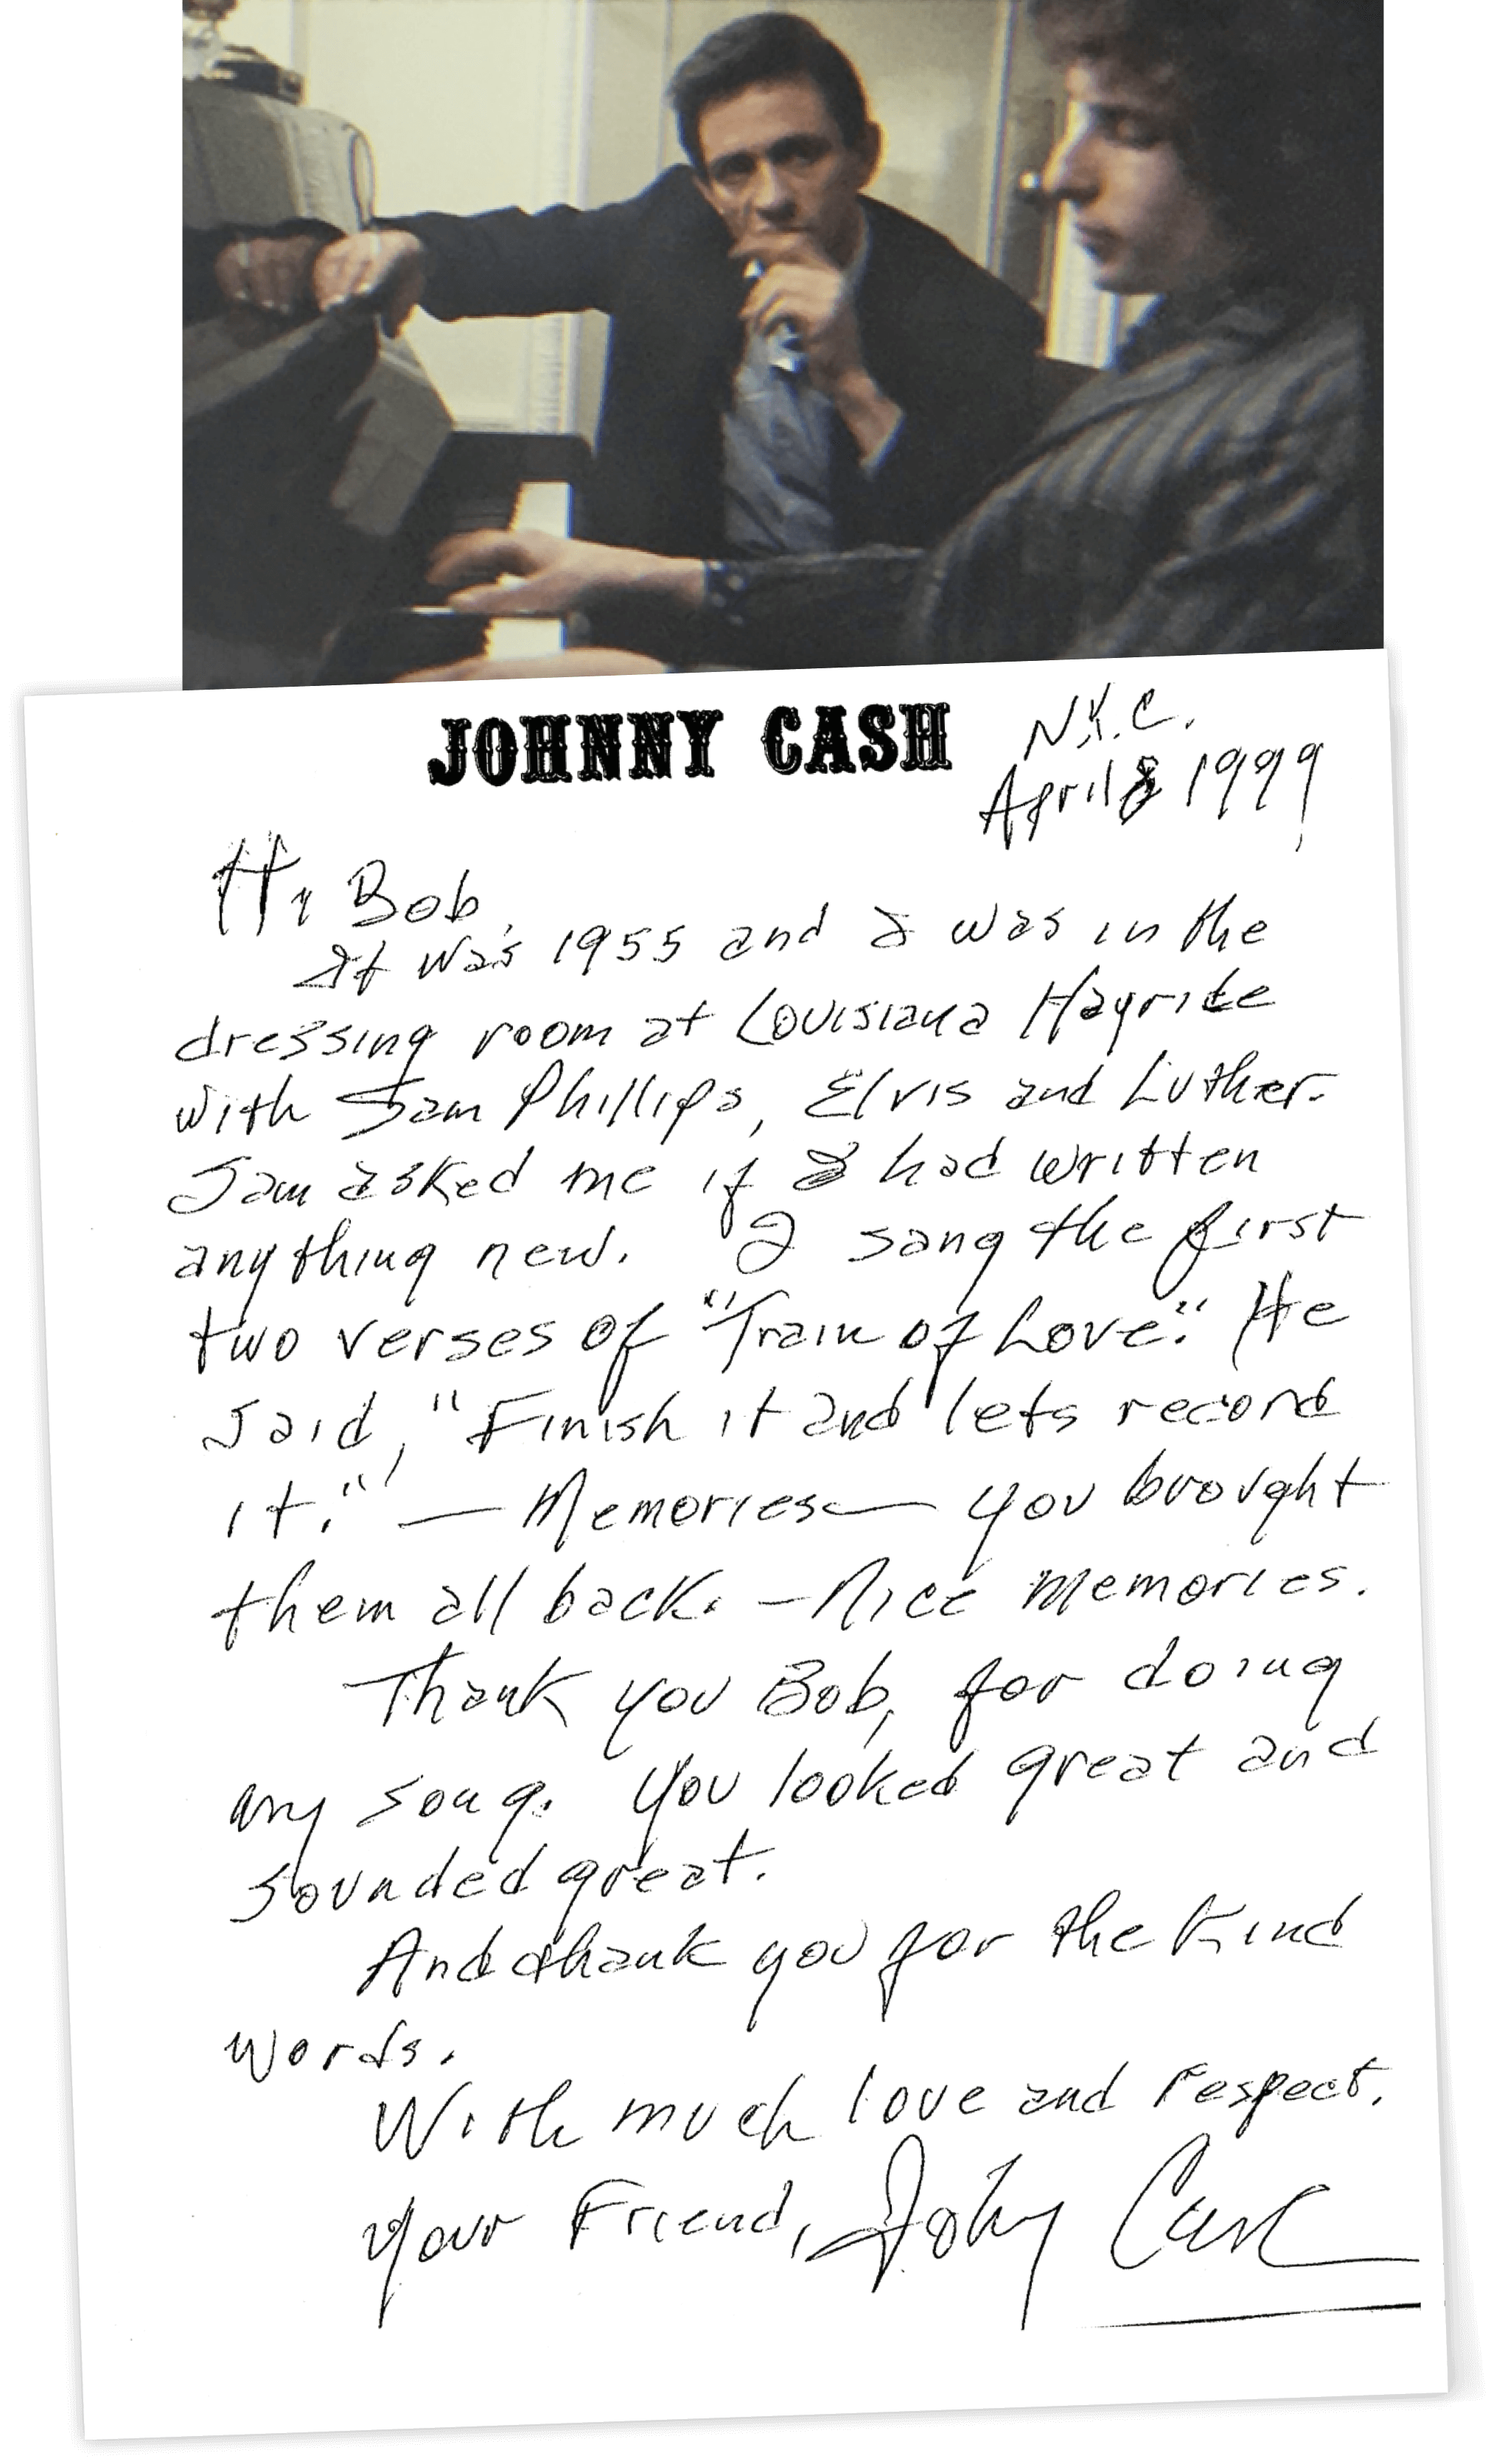 JOHNNY CASH
N.Y.C.
April 8 1999
Hi Bob,
It was 1955 and I was in the
dressing room at Louisiana Hayride
with Sam Phillips, Elvis and Luther.
Sam asked me if I had written
anything new. I sang the first
two verses of "Train of Love." He
said, "Finish it and lets record
it." — Memories — you brought
them all back. — Nice memories.
Thank you Bob, for doing
my song. You looked great and
sounded great.
And thank you for the kind
words.
With much love and respect.
Your Friend, Johnny Cash